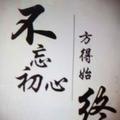 不忘
初心
方得始
终